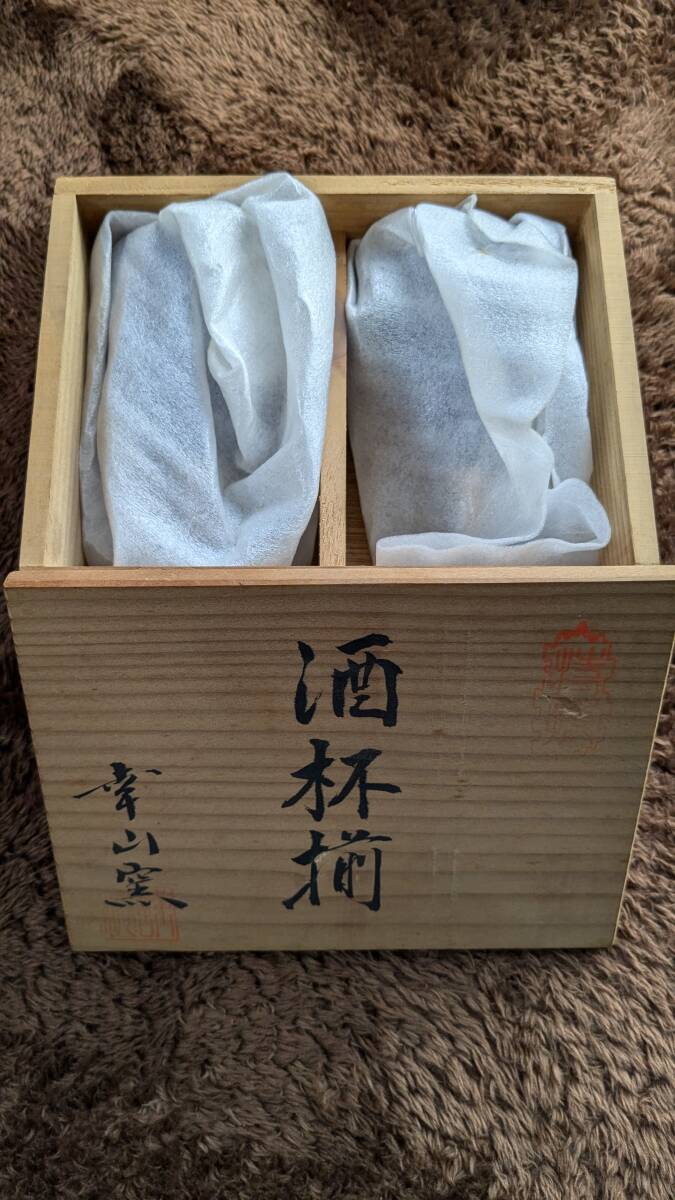 酒杯揃
幸山窯